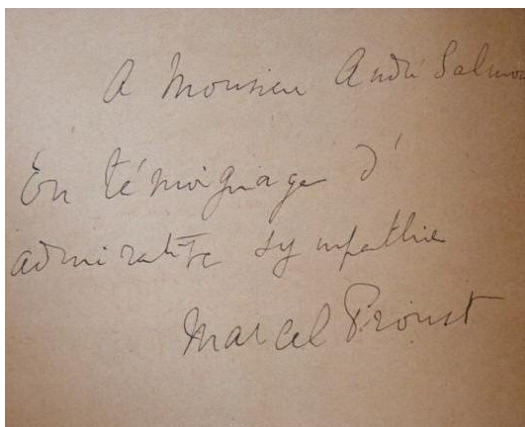 A Monsieur André Salmon
En témoignage d'
admirative sympathie
Marcel Proust